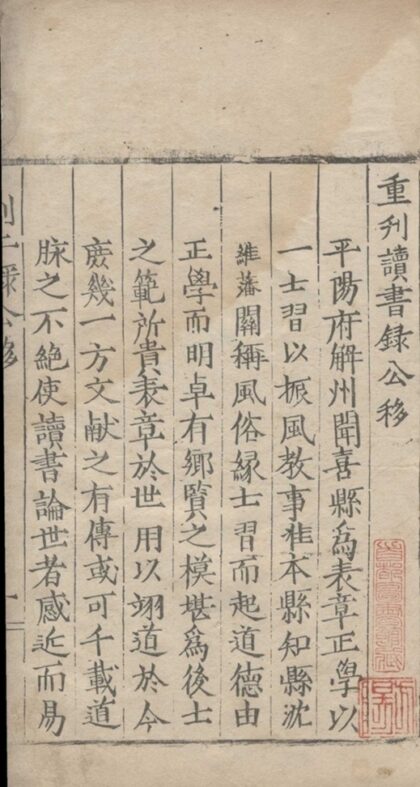 重刋讀書録公移
平陽府解州聞喜縣爲表章正學以
一士習以振風教事准本縣知縣沈
維藩關稱風俗緣士習而起道德由
正學而明卓有鄉賢之模堪爲後士
之範所貴表章於世用以翊道於今
庻幾一方文献之有傳或可千載道
脉之不絶使讀書論世者感近而易